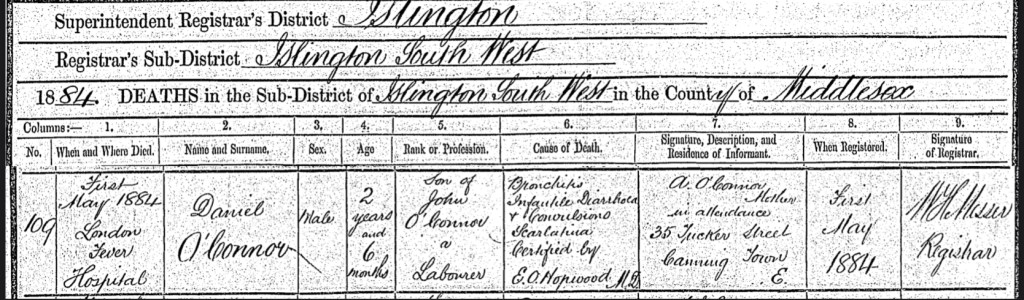 Superintendent Registrar's District Islington
Registrar's Sub-District Islington South West
1884. DEATHS in the Sub-District of Islington South West in the County of Middlesex
Columns:— 1. 2. 3. 4. 5. 6. 7. 8. 9.
No. When and Where Died. Name and Surname. Sex. Age Rank or Profession. Cause of Death. Signature, Description, and Residence of Informant. When Registered. Signature of Registrar.
109
First
May 1884
London
Fever
Hospital
Daniel
O'Connor
Male
2
years
and
6
months
Son of
John
O'Connor
a
Labourer
Bronchitis
Infantile Diarrhoea
& Convulsions
Scarlatina
Certified by
E. O. Hopwood M.D.
A. O'Connor
Mother
in attendance
35 Tucker Street
Canning Town
E.
First
May
1884
W H Messer
Registrar